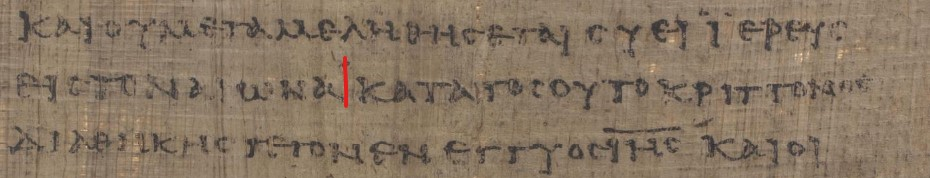 ΚΑΙΟΥΜΕΤΑΜΕΛΗΘΗϹΕΤΑΙ ϹΥ ΕΙ ΪΕΡΕΥϹ
ΕΙϹΤΟΝΑΙΩΝΑ ΚΑΤΑΤΟϹΟΥΤΟΚΡΙΤΤΟΝΟϹ
ΔΙΑΘΗΚΗϹ ΓΕΓΟΝΕΝ ΕΓΓΥΟϹΙ̅Η̅Ϲ̅ ΚΑΙΟΙ